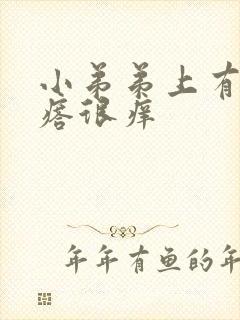 小弟弟上有
痞很痒
年年有鱼的年